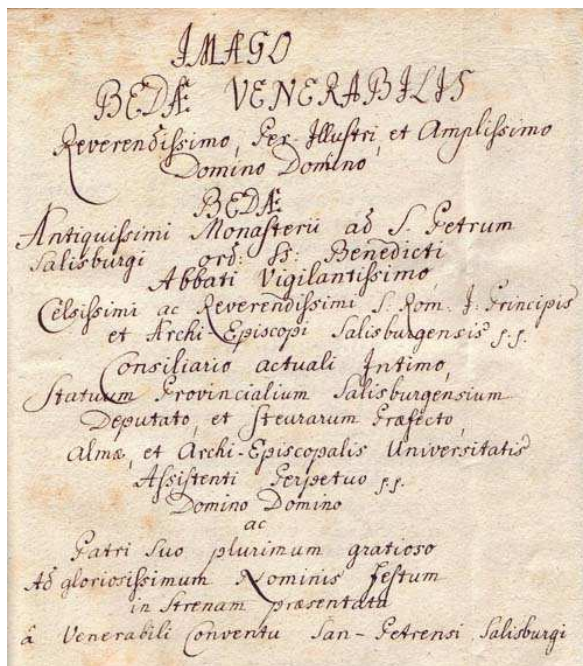 IMAGO
BEDÆ VENERABILIS
Reverendissimo, Per-Illustri, et Amplissimo
Domino Domino,
BEDÆ
Antiquissimi Monasterii ad S. Petrum
Salisburgi ord: SS: Benedicti
Abbati Vigilantissimo,
Celsissimi ac Reverendissimi S. Rom. I. Principis
et Archi-Episcopi Salisburgensis p.p.
Consiliario actuali Intimo,
Statuum Provincialium Salisburgensium
Deputato, et Steurarum Præfecto,
Almæ, et Archi-Episcopalis Universitatis
Assistenti Perpetuo p.p.
Domino Domino
ac
Patri Suo plurimum gratioso
Ad gloriosissimum Nominis festum
in Strenam præsentata
â Venerabili Conventu San-Petrensi Salisburgi